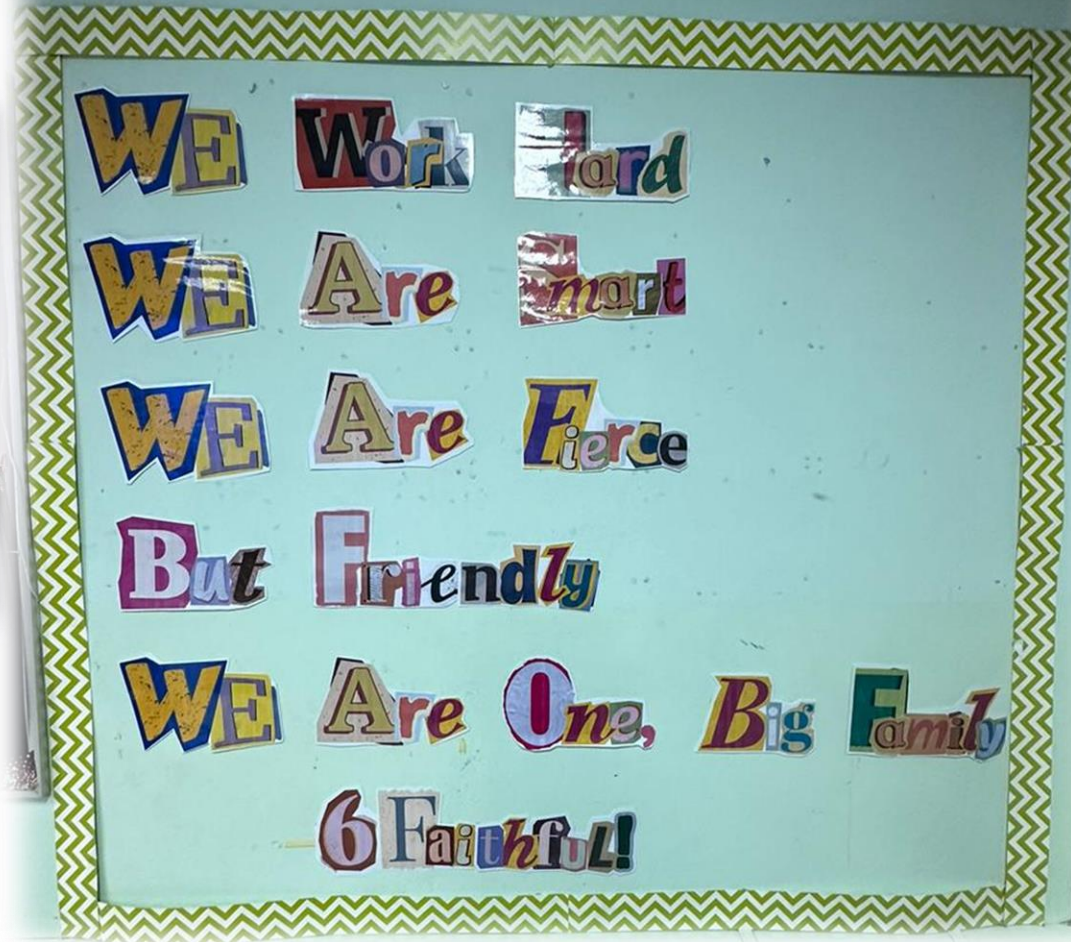 WE Work Hard
WE Are Smart
WE Are Fierce
But Friendly
WE Are One, Big Family
6 Faithful!